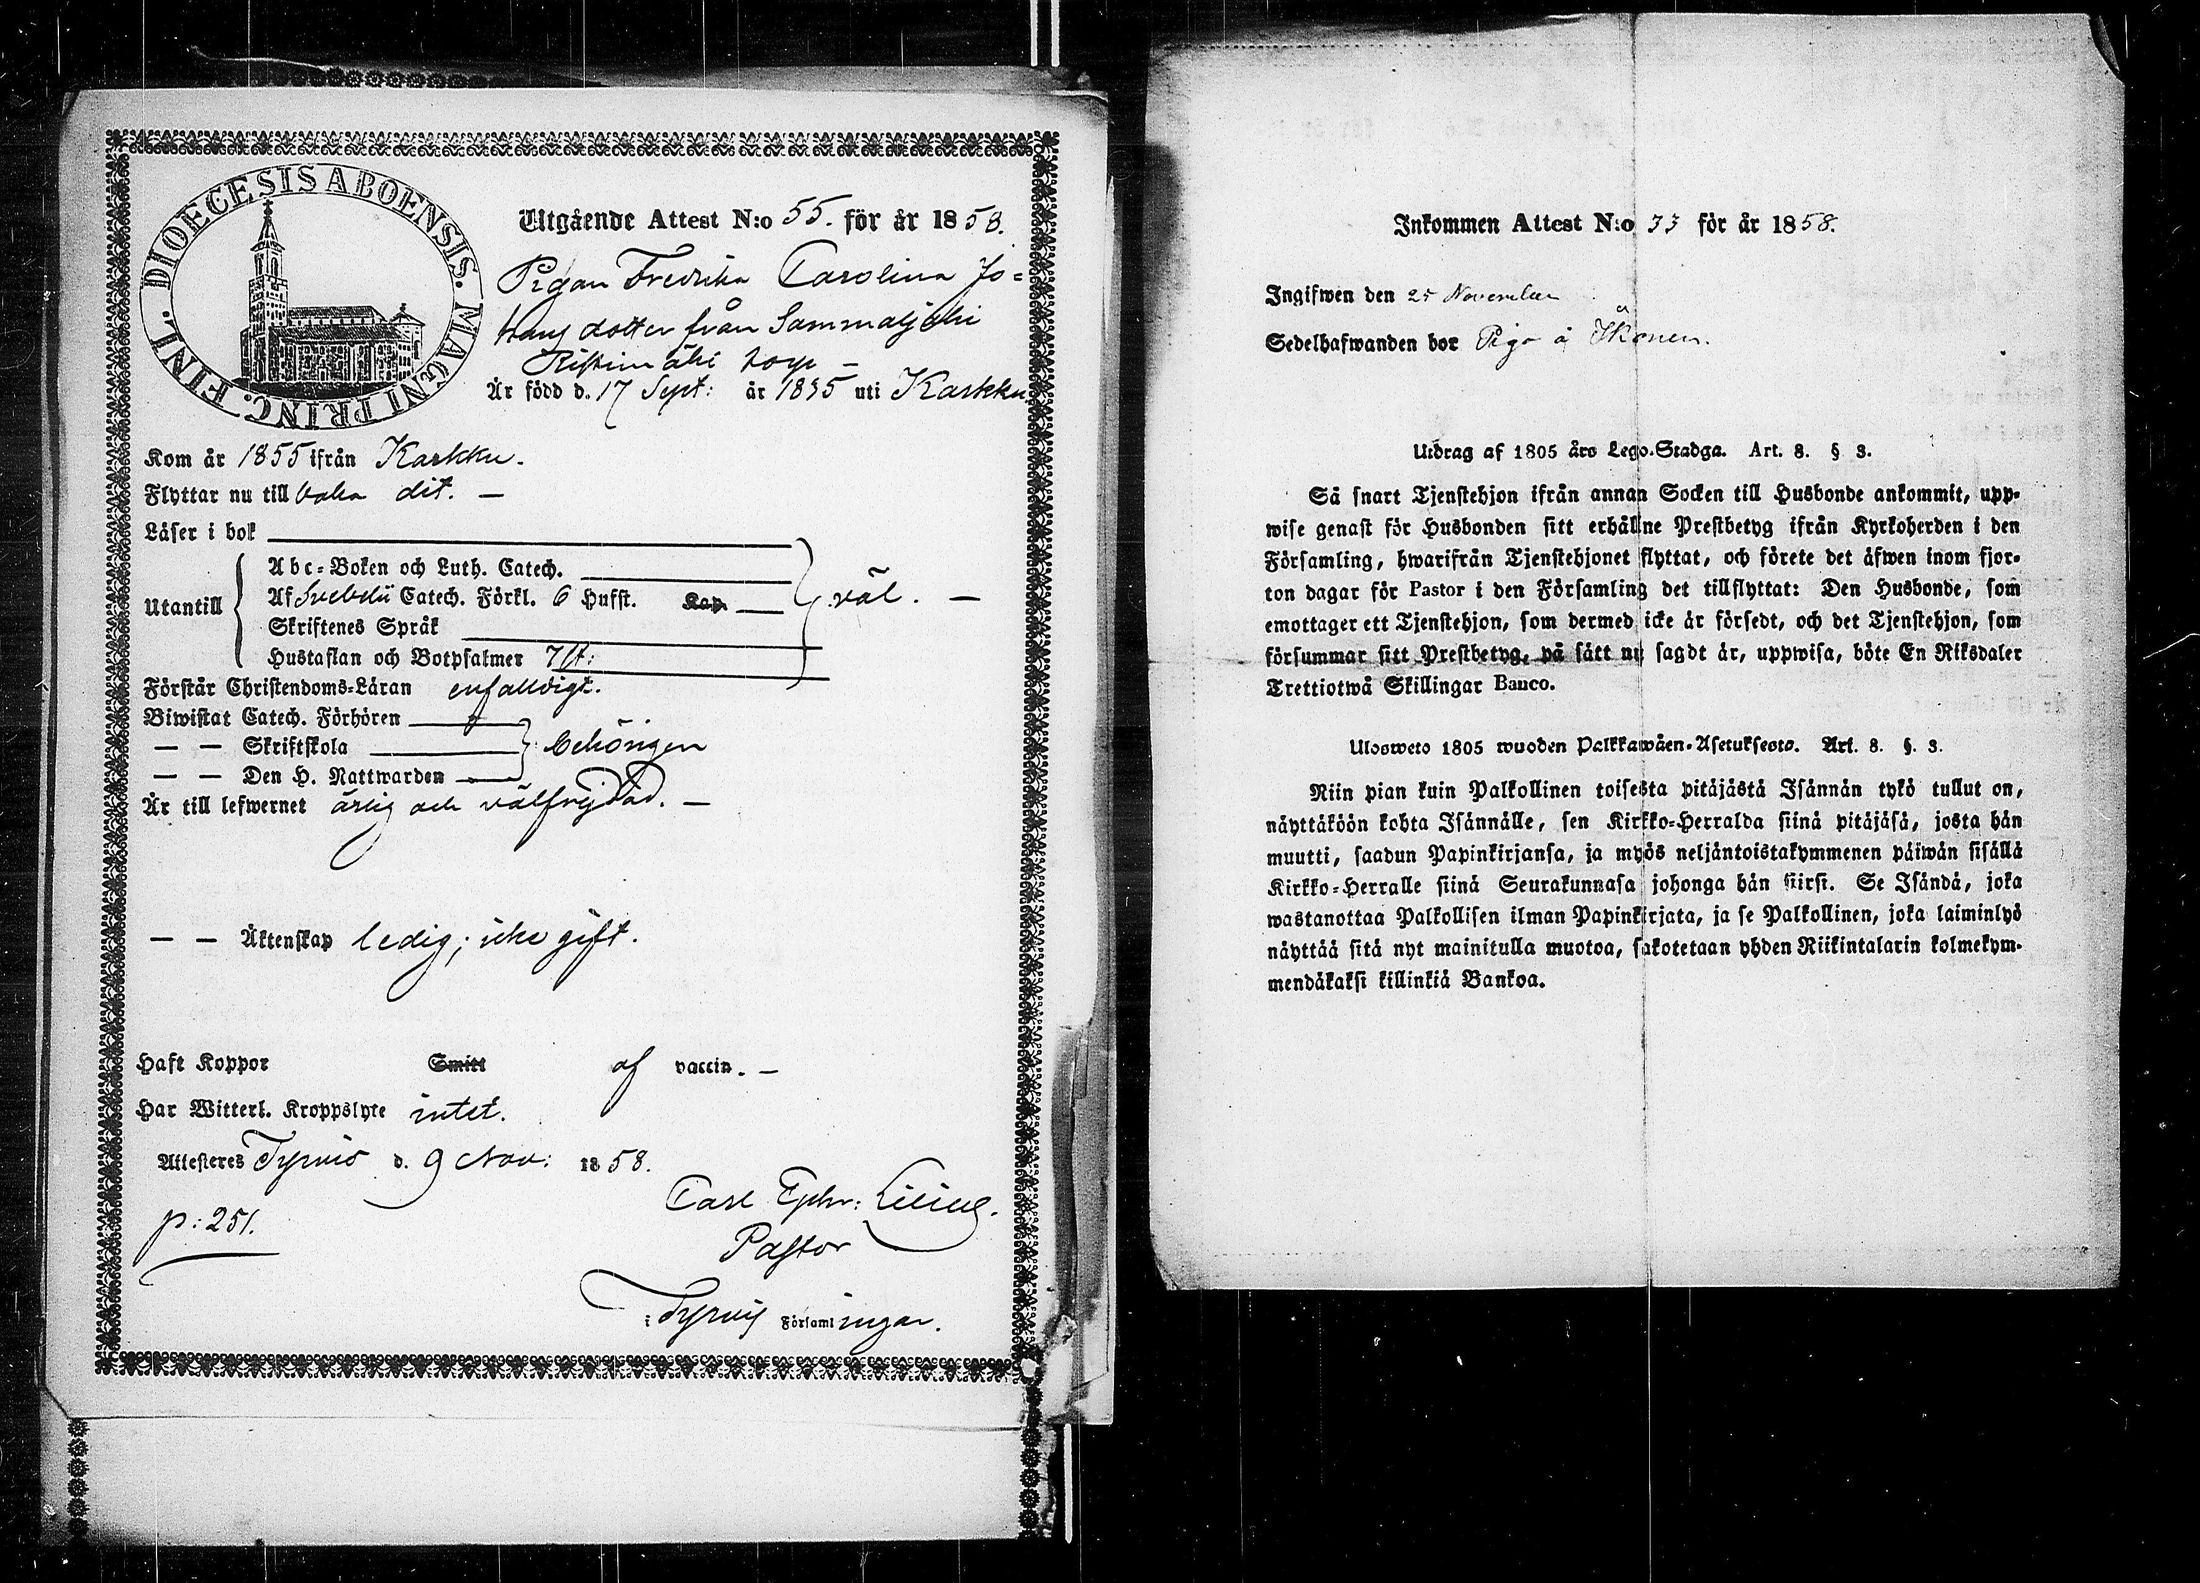 DIOECESIS ABOENSIS. MAGNI PRINC. FINL.
Utgående Attest N:o 55. för år 1858.
Pigan Fredrika Carolina Jo=
hans dotter från Sammaljoki
Ristimäki torp –
Är född d. 17 Sept: år 1835 uti Karkku.
Kom år 1855 ifrån Karkku.
Flyttar nu till baka dit. –
Läser i bok
Utantill
Abc-Boken och Luth. Catech.
Af Svebelii Catech. Förkl. 6 Hufst. Kap.
väl. –
Skriftenes Språk
Hustaflan och Botpsalmer 7 st:
Förstår Christendoms-Läran enfalldigt.
Biwistat Catech. Förhören
— — Skriftskola
behörigen
— — Den H. Nattwarden
Är till lefwernet ärlig och välfrejdad. –
— — Äktenskap ledig; icke gift.
Haft Koppor Smitt af vaccin. –
Har Witterl. Kroppslyte intet.
Attesteres Tyrvis d. 9 Nov: 1858.
p: 251.
Carl Ephr: Lilius.
Pastor
i Tyrvis Församlingar.
Inkommen Attest N:o 33 för år 1858.
Ingifwen den 25 November
Sedelhafwanden bor Piga å
Utdrag af 1805 års Lego-Stadga. Art. 8. § 3.
Så snart Tjenstehjon ifrån annan Socken till Husbonde ankommit, upp-
wise genast för Husbonden sitt erhållne Prestbetyg ifrån Kyrkoherden i den
Församling, hwarifrån Tjenstehjonet flyttat, och förete det äfwen inom fjor-
ton dagar för Pastor i den Församling det tillflyttat: Den Husbonde, som
emottager ett Tjenstehjon, som dermed icke är försedt, och det Tjenstehjon, som
försummar sitt Prestbetyg, på sätt nu sagdt är, uppwisa, böte En Riksdaler
Trettiotwå Skillingar Banco.
Ulosweto 1805 wuoden Palkkawäen-Asetuksesta. Art. 8. §. 3.
Niin pian kuin Palkollinen toisesta pitäjästä Isännän tykö tullut on,
näyttäköön kohta Isännälle, sen Kirkko-Herralda siinä pitäjäsä, josta hän
muutti, saadun Papinkirjansa, ja myös neljäntoistakymmenen päiwän sisällä
Kirkko-Herralle siinä Seurakunnasa johonga hän siirsi. Se Isändä, joka
wastanottaa Palkollisen ilman Papinkirjata, ja se Palkollinen, joka laiminlyö
näyttää sitä nyt mainitulla muotoa, sakotetaan yhden Riikintalarin kolmekym-
mendäkaksi killinkiä Bankoa.